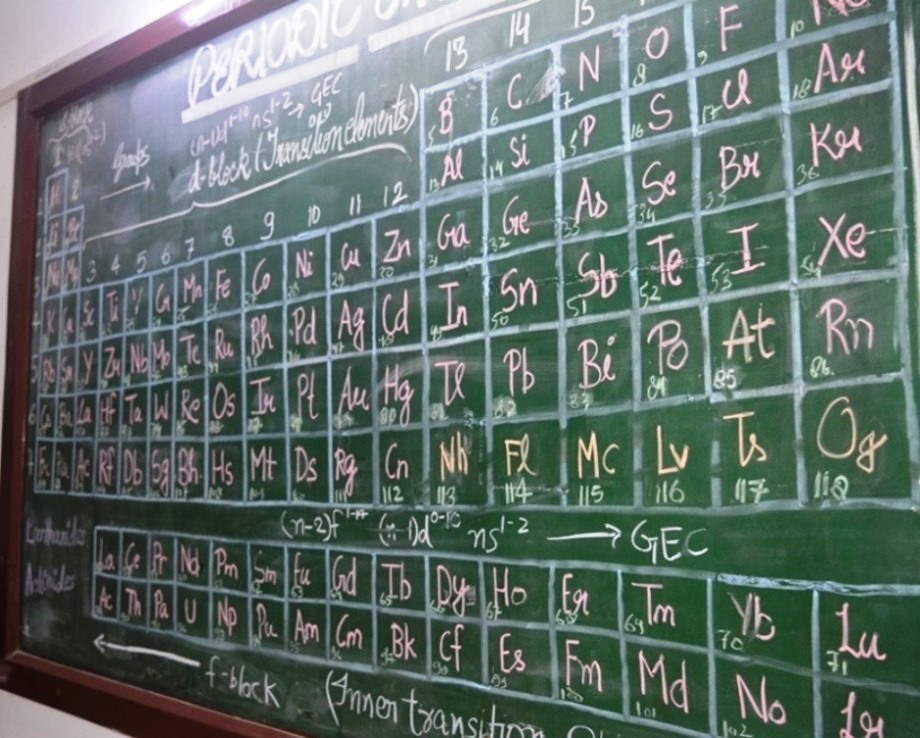 PERIODIC
(n-1)d¹⁻¹⁰ ns¹⁻² → GEC
groups → d-block (Transition elements)
13 14 15
B C N O F Ne
5 6 7 8 9 10
Al Si P S Cl Ar
13 14 15 16 17 18
3 4 5 6 7 8 9 10 11 12
Sc Ti V Cr Mn Fe Co Ni Cu Zn Ga Ge As Se Br Kr
31 32 33 34 35 36
K Ca
Y Zr Nb Mo Tc Ru Rh Pd Ag Cd In Sn Sb Te I Xe
50 51 52 53 54
Rb Sr
La Hf Ta W Re Os Ir Pt Au Hg Tl Pb Bi Po At Rn
80 81 82 83 84 85 86
Cs Ba
Fr Ra Ac Rf Db Sg Bh Hs Mt Ds Rg Cn Nh Fl Mc Lv Ts Og
111 112 113 114 115 116 117 118
(n-2)f¹⁻¹⁴ (n-1)d⁰⁻¹⁰ ns¹⁻² → GEC
Lanthanides La Ce Pr Nd Pm Sm Eu Gd Tb Dy Ho Er Tm Yb Lu
67 68 69 70 71
Actinides Ac Th Pa U Np Pu Am Cm Bk Cf Es Fm Md No Lr
99 100 101 102
← f-block (Inner transition